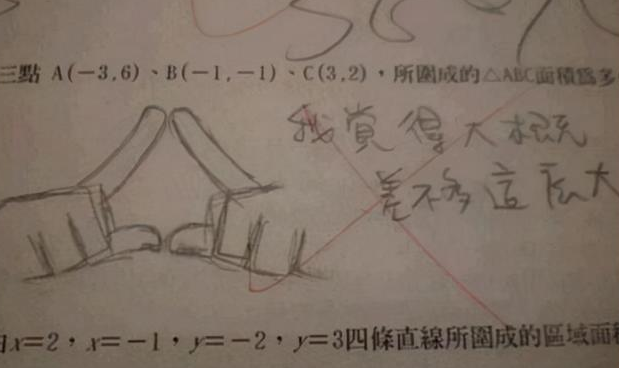 三點 A(-3,6)、B(-1,-1)、C(3,2)，所圍成的△ABC面積為多
我覺得大概
差不多這麼大
x=2，x=-1，y=-2，y=3四條直線所圍成的區域面積